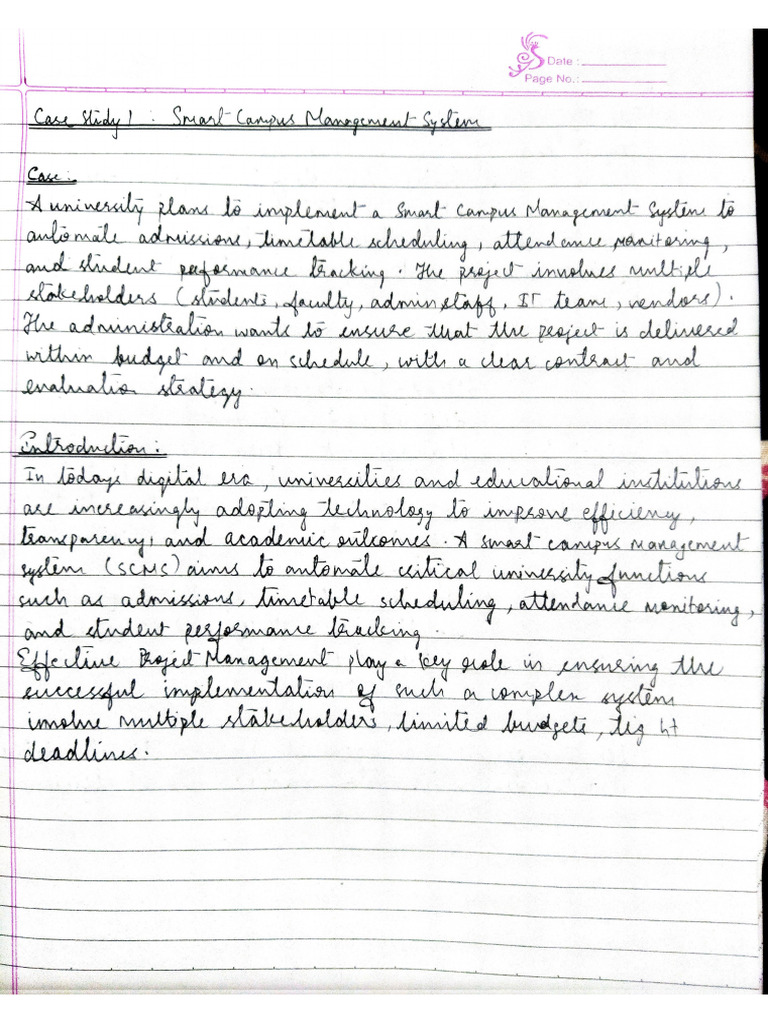 Date :
Page No.:
Case Study 1 : Smart Campus Management System
Case:
A university plans to implement a Smart Campus Management System to
automate admissions, timetable scheduling, attendance monitoring,
and student performance tracking. The project involves multiple
stakeholders (students, faculty, admin staff, IT team, vendors).
The administration wants to ensure that the project is delivered
within budget and on schedule, with a clear contract and
evaluation strategy.
Introduction:
In todays digital era, universities and educational institutions
are increasingly adopting technology to improve efficiency,
transparency, and academic outcomes. A smart campus management
system (SCMS) aims to automate critical university functions
such as admissions, timetable scheduling, attendance monitoring,
and student performance tracking.
Effective Project Management play a key role in ensuring the
successful implementation of such a complex system
involve multiple stakeholders, limited budgets, tight
deadlines.